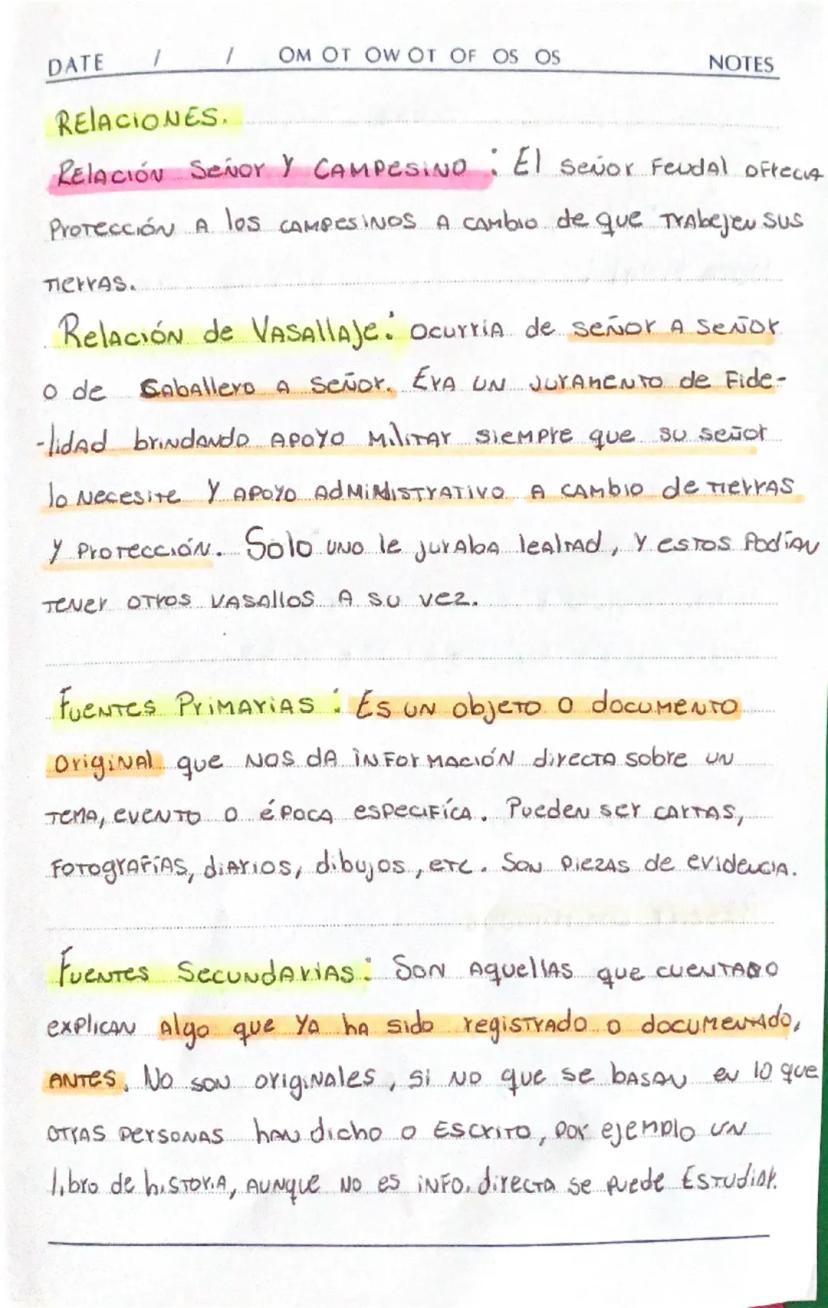 DATE / / OM OT OW OT OF OS OS NOTES
RELACIONES.
RELACIÓN SEÑOR Y CAMPESINO : El SEÑOR FEUDAL OFRECIA
PROTECCIÓN A los CAMPESINOS A CAMBIO de que TRABAJEN SUS
TIERRAS.
Relación de VASALLAJE: OCURRIA de SEÑOR A SEÑOR
O de CABALLERO A SEÑOR. ERA UN JURAMENTO de Fide-
-lidad brindando APOYO MILITAR SIEMPRE que SU SEÑOR
lo NECESITE Y APOYO ADMINISTRATIVO A CAMBIO de TIERRAS
Y PROTECCIÓN. Solo UNO le JURABA lealtad, Y ESTOS PODÍAN
TENER OTROS VASALLOS A SU VEZ.
FUENTES PRIMARIAS : ES UN objeto O documento
ORIGINAL que NOS dA INFORMACIÓN directa sobre UN
TEMA, EVENTO O éPOCA ESPECIFÍCA. Pueden ser CARTAS,
FOTOGRAFÍAS, diARIOS, dibujos, ETC. SON PIEZAS de evidencia.
FUENTES SECUNDARIAS: SON AQUELLAS que CUENTAN O
EXPLICAN Algo que YA ha sido registrado o documentado,
ANTES. No SON ORIGINALES, SI NO que se BASAN EN lo que
OTRAS PERSONAS han dicho o ESCRITO, POR EJEMPLO UN
libro de hISTORIA, AUNQUE NO ES INFO. directa se puede ESTUDIAR.